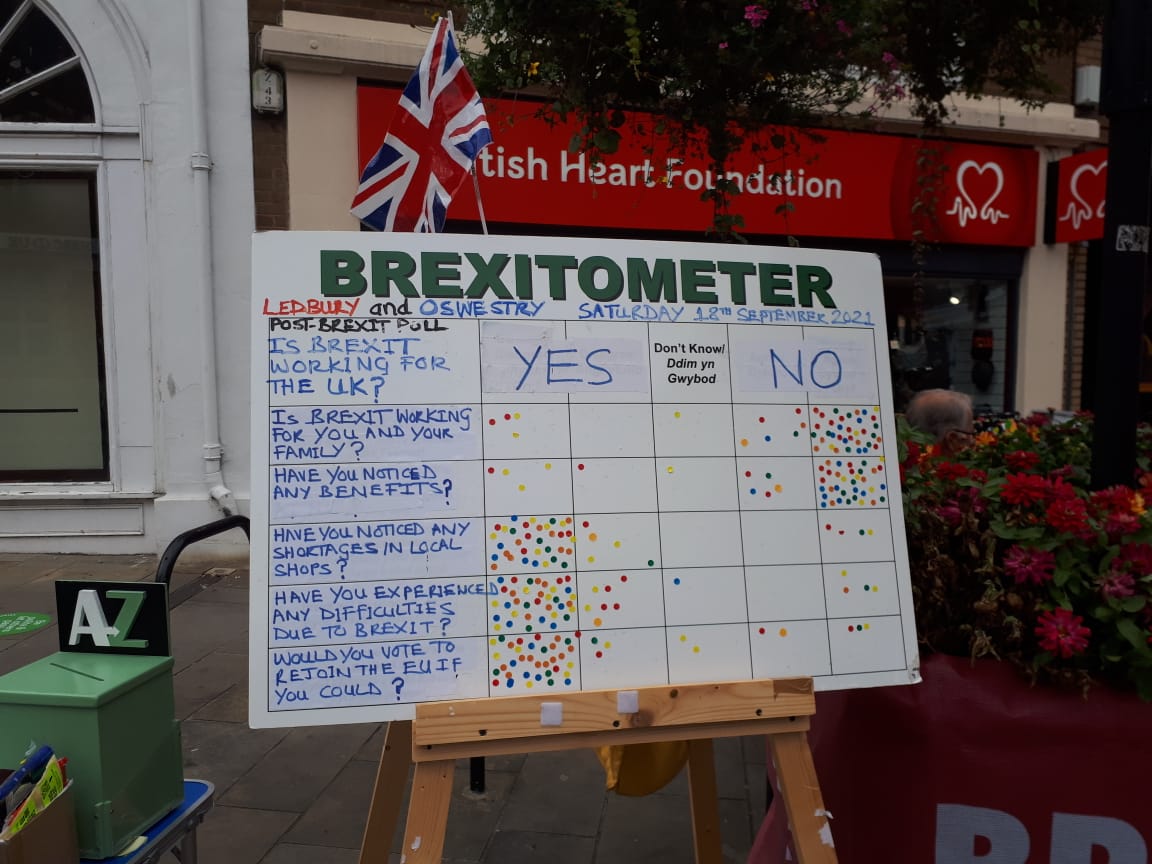 743
tish Heart Foundation
BREXITOMETER
LEDBURY and OSWESTRY SATURDAY 18TH SEPTEMBER 2021
POST-BREXIT POLL
IS BREXIT
WORKING FOR
THE UK?
YES
Don't Know/
Ddim yn
Gwybod
NO
IS BREXIT WORKING
FOR YOU AND YOUR
FAMILY?
HAVE YOU NOTICED
ANY BENEFITS?
HAVE YOU NOTICED ANY
SHORTAGES IN LOCAL
SHOPS?
HAVE YOU EXPERIENCED
ANY DIFFICULTIES
DUE TO BREXIT?
WOULD YOU VOTE TO
REJOIN THE EU IF
YOU COULD?
AZ